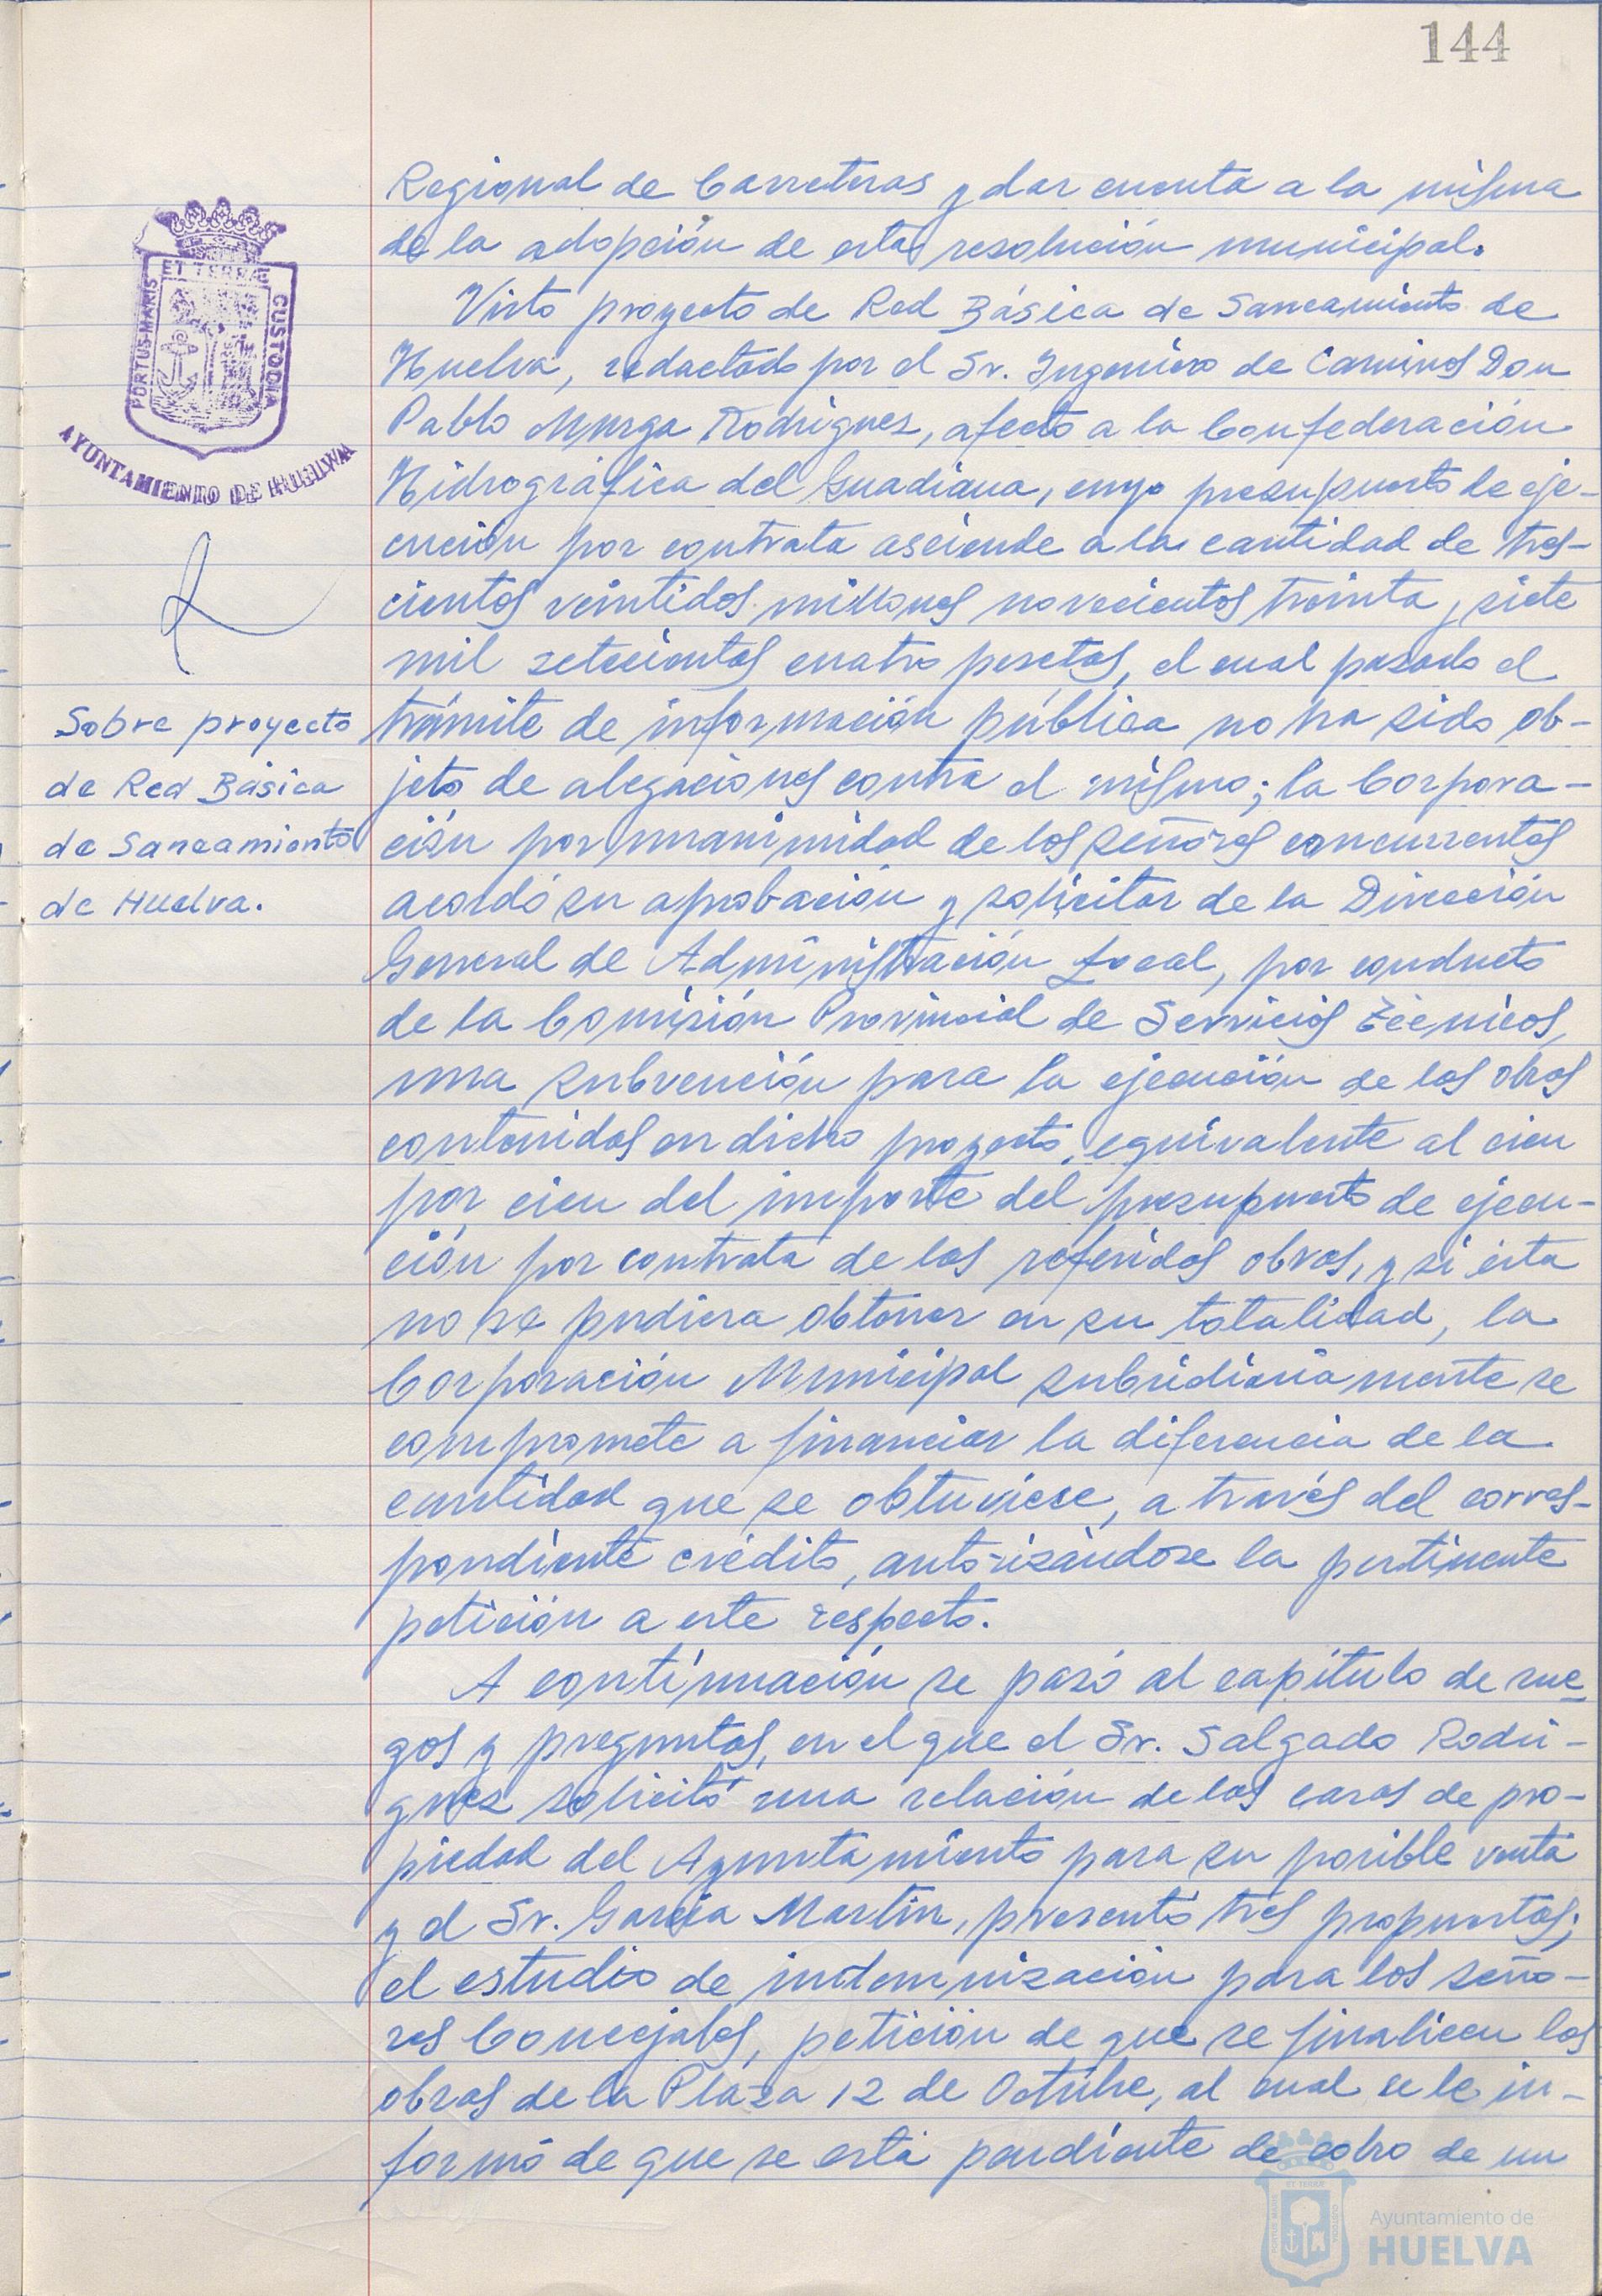 144
ET TERRÆ
PORTUS-MARIS
CUSTODIA
AYUNTAMIENTO DE HUELVA
Sobre proyecto
de Red Básica
de Saneamiento
de Huelva.
Regional de Carreteras y dar cuenta a la misma
de la adopción de esta resolución municipal.
Visto proyecto de Red Básica de Saneamiento de
Huelva, redactado por el Sr. Ingeniero de Caminos Don
Pablo Murga Rodríguez, afecto a la Confederación
Hidrográfica del Guadiana, cuyo presupuesto de eje-
cución por contrata asciende a la cantidad de tres-
cientos veintidos millones novecientos treinta y siete
mil setecientas cuatro pesetas, el cual pasado el
trámite de información pública no ha sido ob-
jeto de alegaciones contra el mismo; la Corpora-
ción por unanimidad de los señores concurrentes
acordó su aprobación y solicitar de la Dirección
General de Administración Local, por conducto
de la Comisión Provincial de Servicios Técnicos,
una subvención para la ejecución de las obras
contenidas en dicho proyecto, equivalente al cien
por cien del importe del presupuesto de ejecu-
ción por contrata de las referidas obras, y si ésta
no se pudiera obtener en su totalidad, la
Corporación Municipal subsidiariamente se
compromete a financiar la diferencia de la
cantidad que se obtuviese, a través del corres-
pondiente crédito, autorizándose la pertinente
petición a este respecto.
A continuación se pasó al capítulo de rue-
gos y preguntas, en el que el Sr. Salgado Rodrí-
guez solicitó una relación de las casas de pro-
piedad del Ayuntamiento para su posible venta
y el Sr. García Martín, presentó tres propuestas;
el estudio de indemnización para los seño-
res Concejales, petición de que se finalicen las
obras de la Plaza 12 de Octubre, al cual se le in-
formó de que se está pendiente de cobro de un
Ayuntamiento de
HUELVA